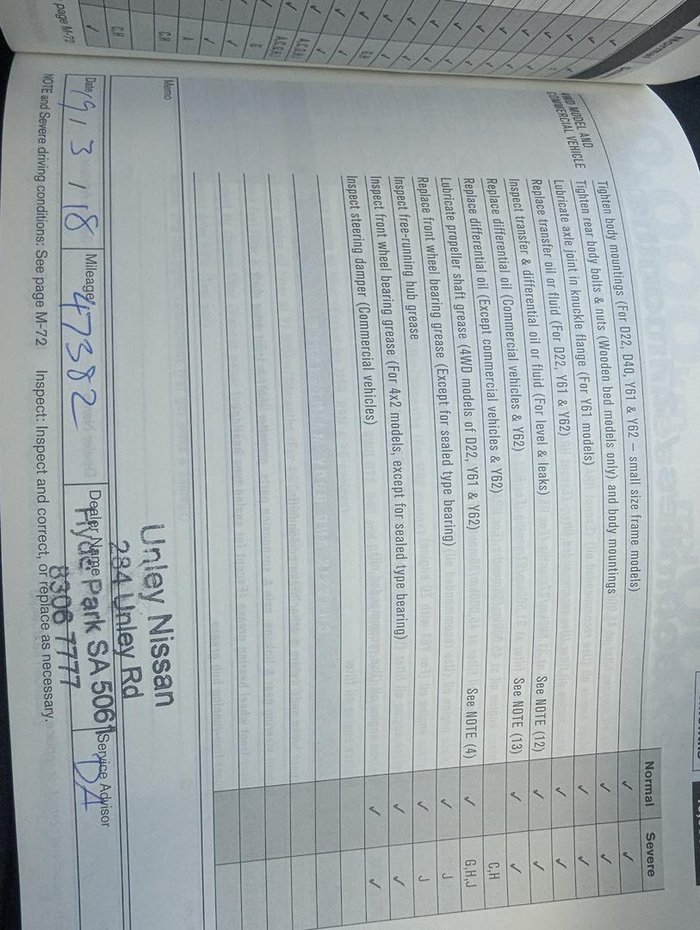 Normal Severe
4WD MODEL AND
COMMERCIAL VEHICLE
Tighten body mountings (For D22, D40, Y61 & Y62 – small size frame models) ✓ ✓
Tighten rear body bolts & nuts (Wooden bed models only) and body mountings ✓ ✓
Tighten axle joint in knuckle flange (For Y61 models) ✓ ✓
Lubricate axle joint in knuckle flange (For Y61 models)
Replace transfer oil or fluid (For D22, Y61 & Y62) See NOTE (12) ✓ ✓
Inspect transfer & differential oil or fluid (For level & leaks) ✓ ✓
Replace differential oil (Commercial vehicles & Y62) See NOTE (13) C,H
Replace differential oil (Except commercial vehicles & Y62) See NOTE (4) ✓ G,H,J
Lubricate propeller shaft grease (4WD models of D22, Y61 & Y62) ✓ J
Replace front wheel bearing grease (Except for sealed type bearing) ✓ J
Inspect free-running hub grease ✓ ✓
Inspect front wheel bearing grease (For 4x2 models, except for sealed type bearing) ✓ ✓
Inspect steering damper (Commercial vehicles)
Memo
Unley Nissan
284 Unley Rd
Hyde Park SA 5061
8306 7777
Date 19/3/18 Mileage 47382 Dealer Name Service Advisor DA
NOTE and Severe driving conditions: See page M-72 Inspect: Inspect and correct, or replace as necessary.
page M-72